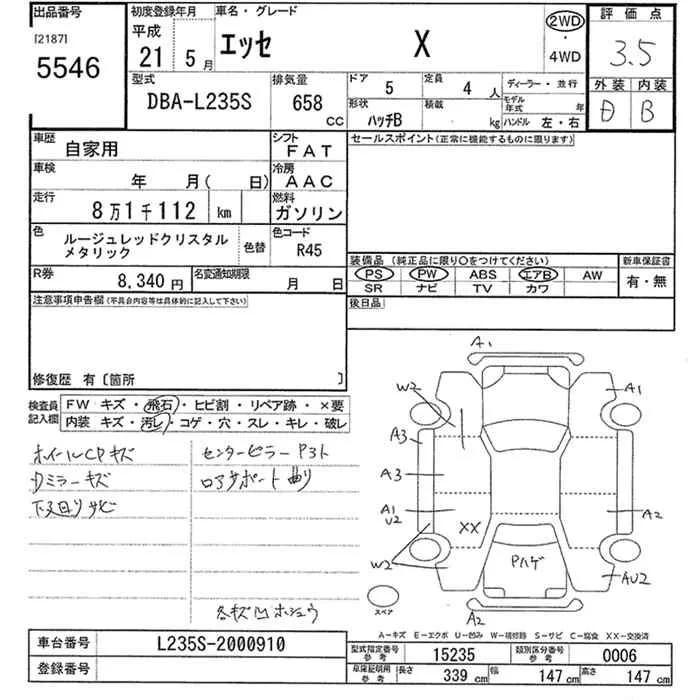 出品番号
[2187]
5546
初度登録年月
平成
21 5 月
車名・グレード
エッセ X
2WD
・
4WD
評価点
3.5
外装 内装
D B
型式
DBA-L235S
排気量
658
CC
ドア
5
定員
4 人
ディーラー・並行
形状
ハッチB
積載
kg
モデル年式 年
ハンドル 左・右
車歴
自家用
シフト
FAT
車検
年 月( 日)
冷房
AAC
走行
8万1千112 km
燃料
ガソリン
色
ルージュレッドクリスタル
メタリック
色替
色コード
R45
R券
8,340 円
名変通知期限
月 日
セールスポイント(正常に機能するものに限ります)
装備品 (純正品に限り○をつけてください)
PS PW ABS エアB AW
SR ナビ TV カワ
新車保証書
有・無
後日品
注意事項申告欄(不具合内容等は具体的に記入して下さい)
修復歴 有〔箇所 〕
検査員
記入欄
FW キズ・飛石・ヒビ割・リペア跡・×要
内装 キズ・汚レ・コゲ・穴・スレ・キレ・破レ
ホイールCPキズ
Dミラーキズ
下廻りサビ
センターピラー P3ト
ロアサポート曲り
各キズ凹ホシュウ
A1
W2
A1
A3
A3
A1
U2
XX
A2
W2
Pハゲ
AU2
スペア
A2
A―キズ E―エクボ U―凹み W―補修跡 S―サビ C―腐食 XX―交換済
車台番号
L235S-2000910
登録番号
型式指定番号
参考
15235
類別区分番号
参考
0006
車庫証明用
参考
長さ
339 cm
幅
147 cm
高さ
147 cm